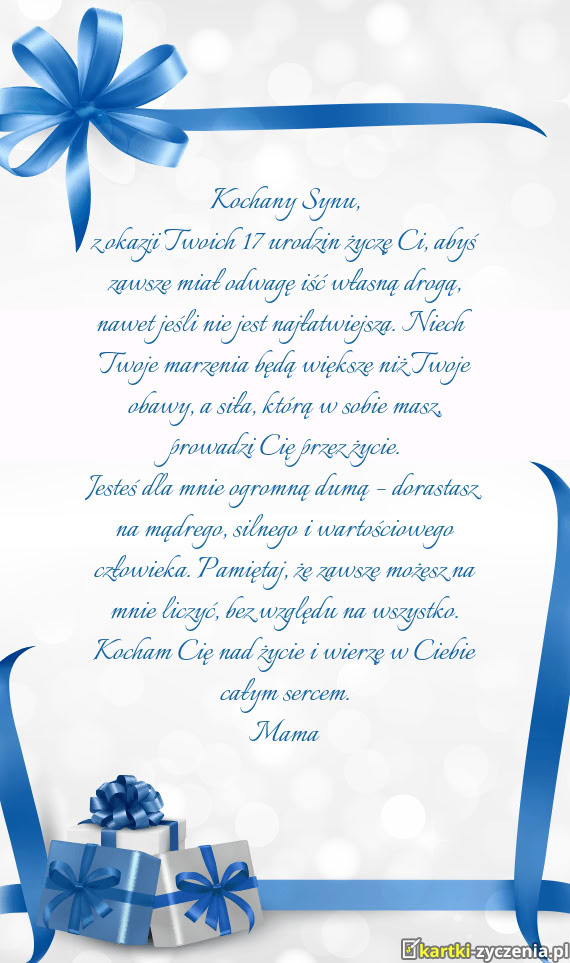 Kochany Synu,
z okazji Twoich 17 urodzin życzę Ci, abyś
zawsze miał odwagę iść własną drogą,
nawet jeśli nie jest najłatwiejsza. Niech
Twoje marzenia będą większe niż Twoje
obawy, a siła, którą w sobie masz,
prowadzi Cię przez życie.
Jesteś dla mnie ogromną dumą – dorastasz
na mądrego, silnego i wartościowego
człowieka. Pamiętaj, że zawsze możesz na
mnie liczyć, bez względu na wszystko.
Kocham Cię nad życie i wierzę w Ciebie
całym sercem.
Mama
kartki-zyczenia.pl